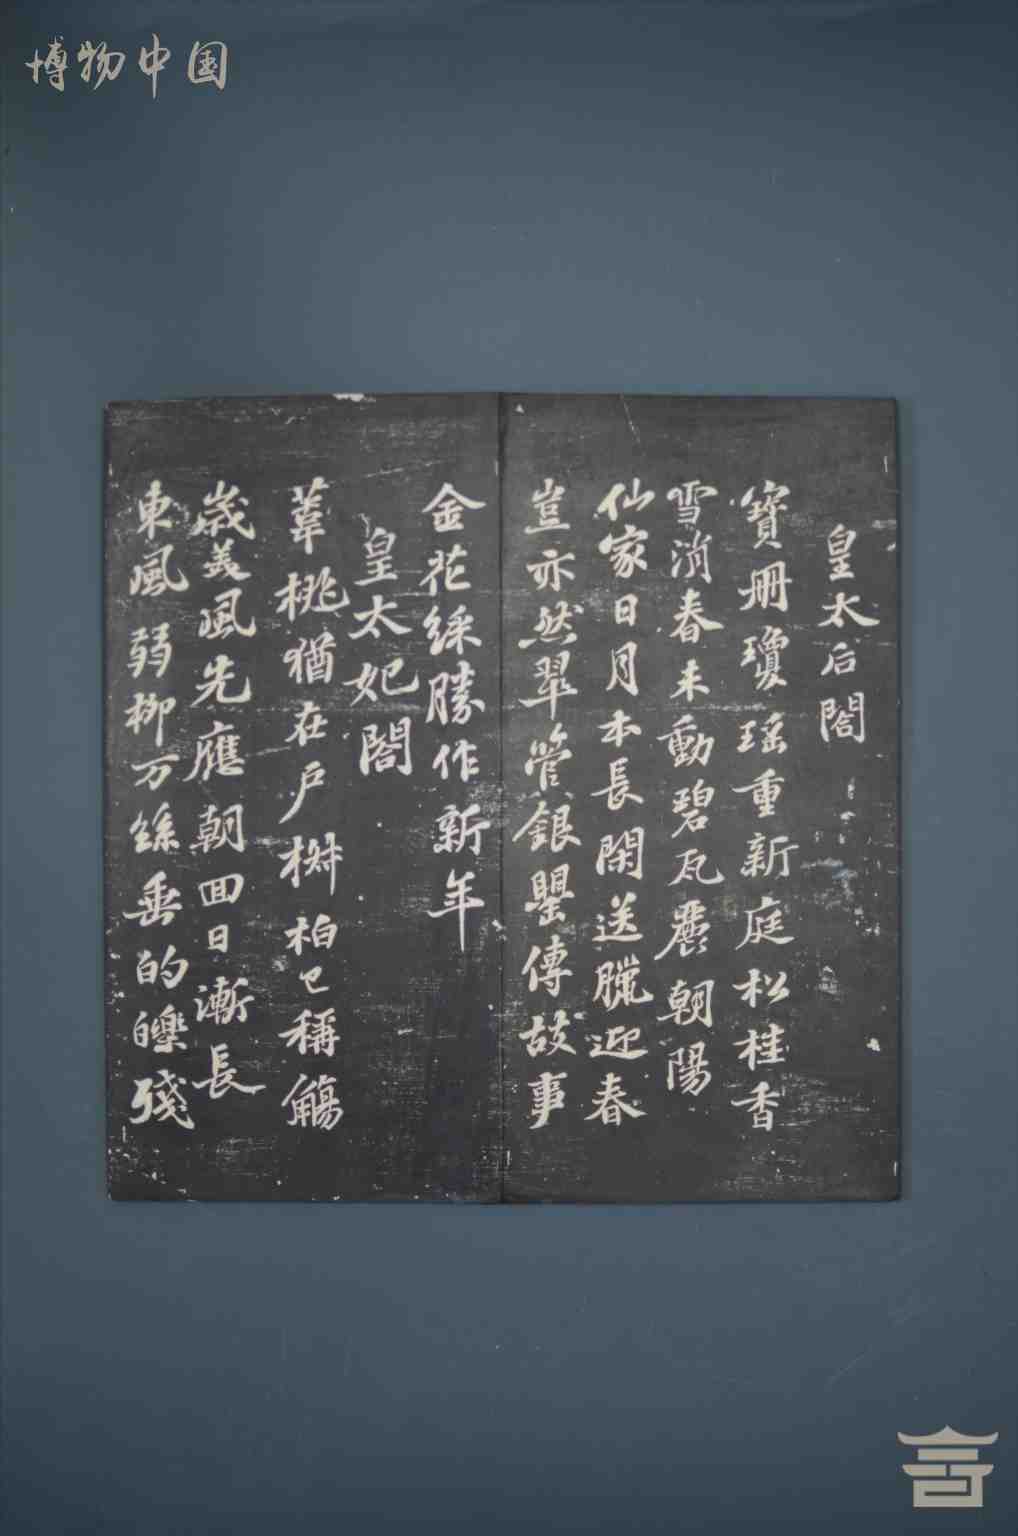 博物中国
皇太后閣
寶冊瓊瑤重新庭松桂香
雪消春未動碧瓦麗朝陽
仙家日月本長閑送臘迎春
豈亦然翠管銀罌傳故事
金花綵勝作新年
皇太妃閣
葦桃猶在戶椒柏已稱觴
歲美風先應朝回日漸長
東風弱柳万絲垂的皪殘